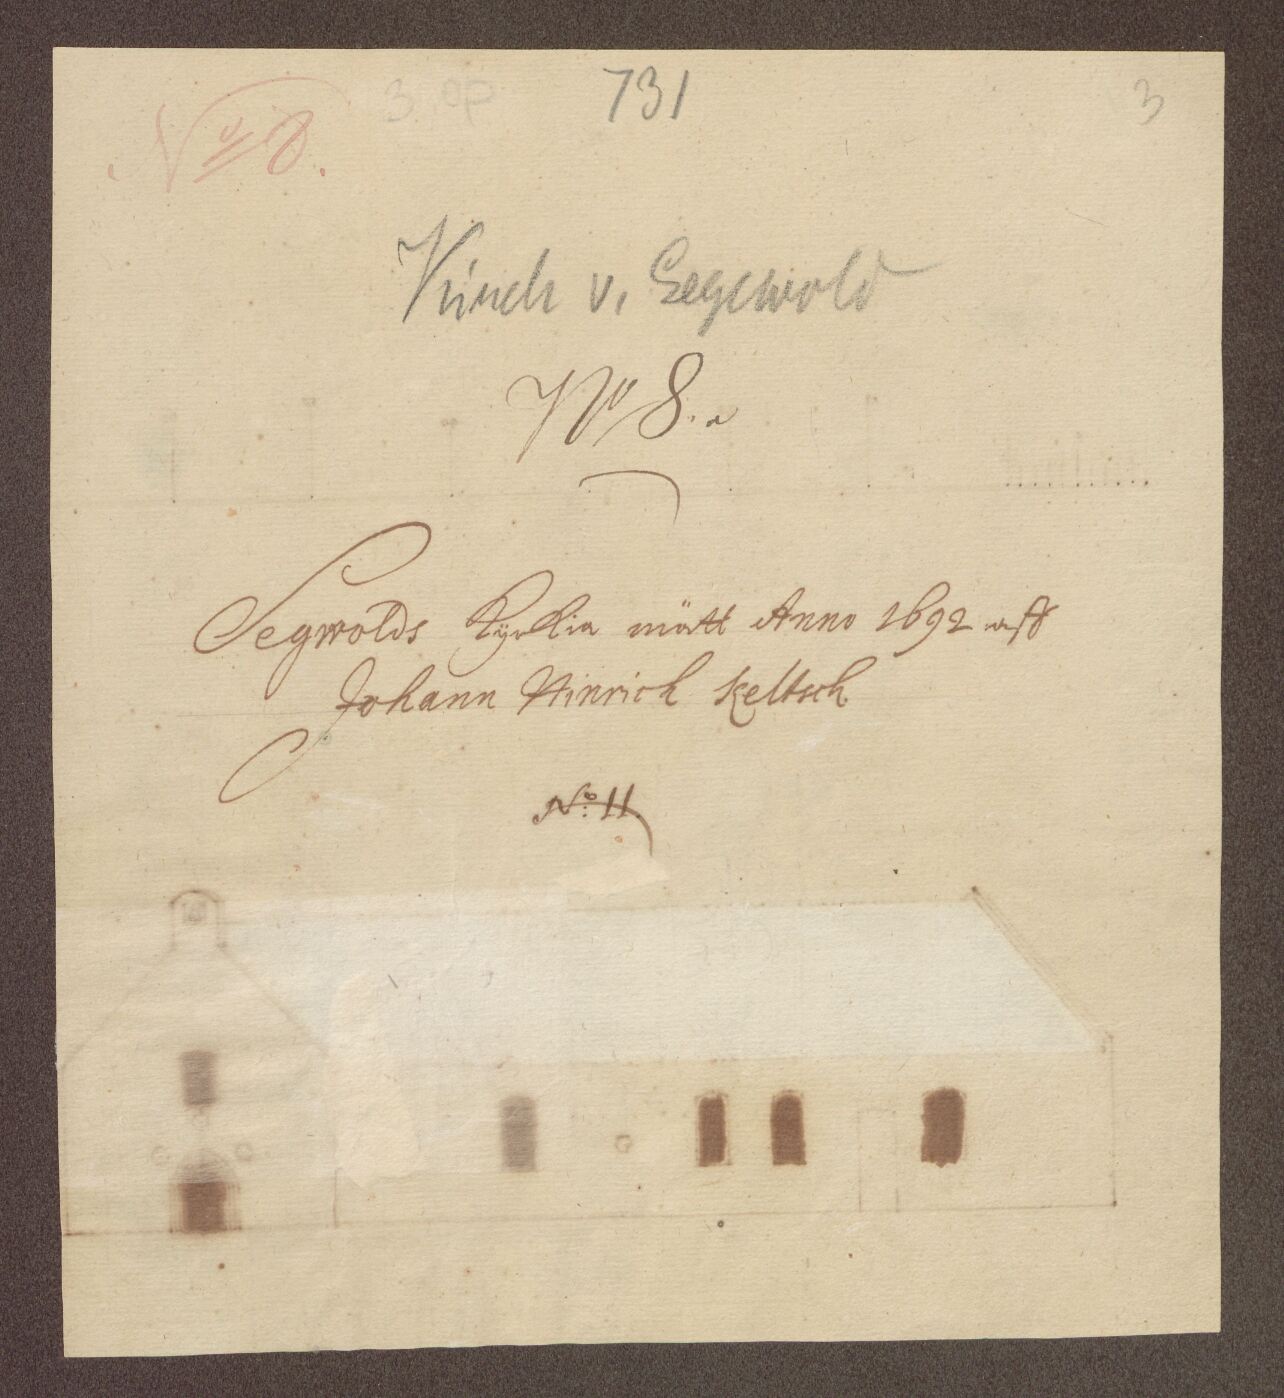 No 8.
731
3
Kirch v. Segewold
No 8.
Segwolds Kyrkia mätt Anno 1692 aff
Johann Hinrich Keltsch
No: 11.